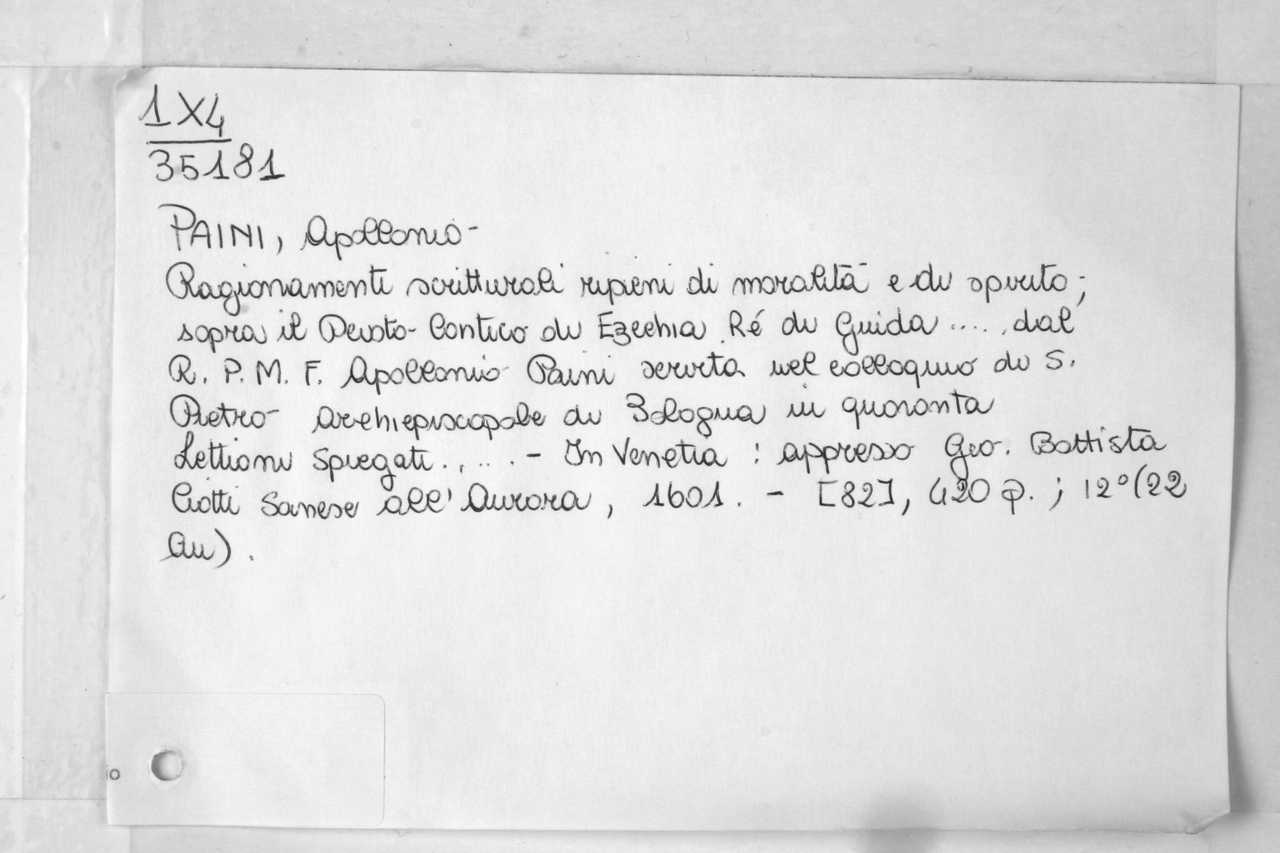 1X4
35181
PAINI, Apollonio
Ragionamenti scritturali ripieni di moralità e di spirito;
sopra il Devoto Cantico di Ezechia Ré di Guida .... dal
R. P. M. F. Apollonio Paini servita nel colloquio di S.
Pietro Archiepiscopale di Bologna in quaranta
Lettioni Spiegati..... - In Venetia : appresso Gio. Battista
Ciotti Sanese all' Aurora, 1601. - [82], 420 p. ; 12° (22
cm).
io